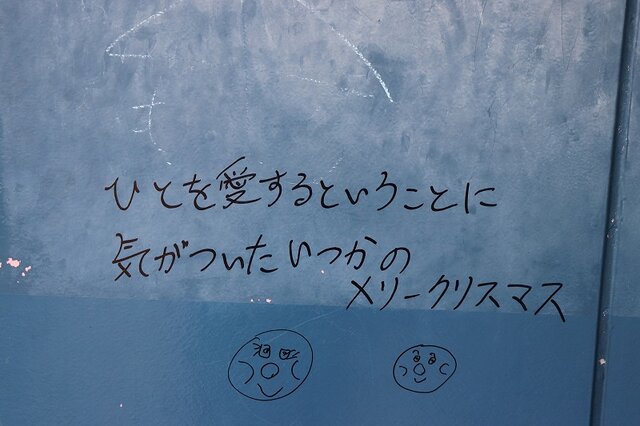 ひとを愛するということに
気がついたいつかの
メリークリスマス